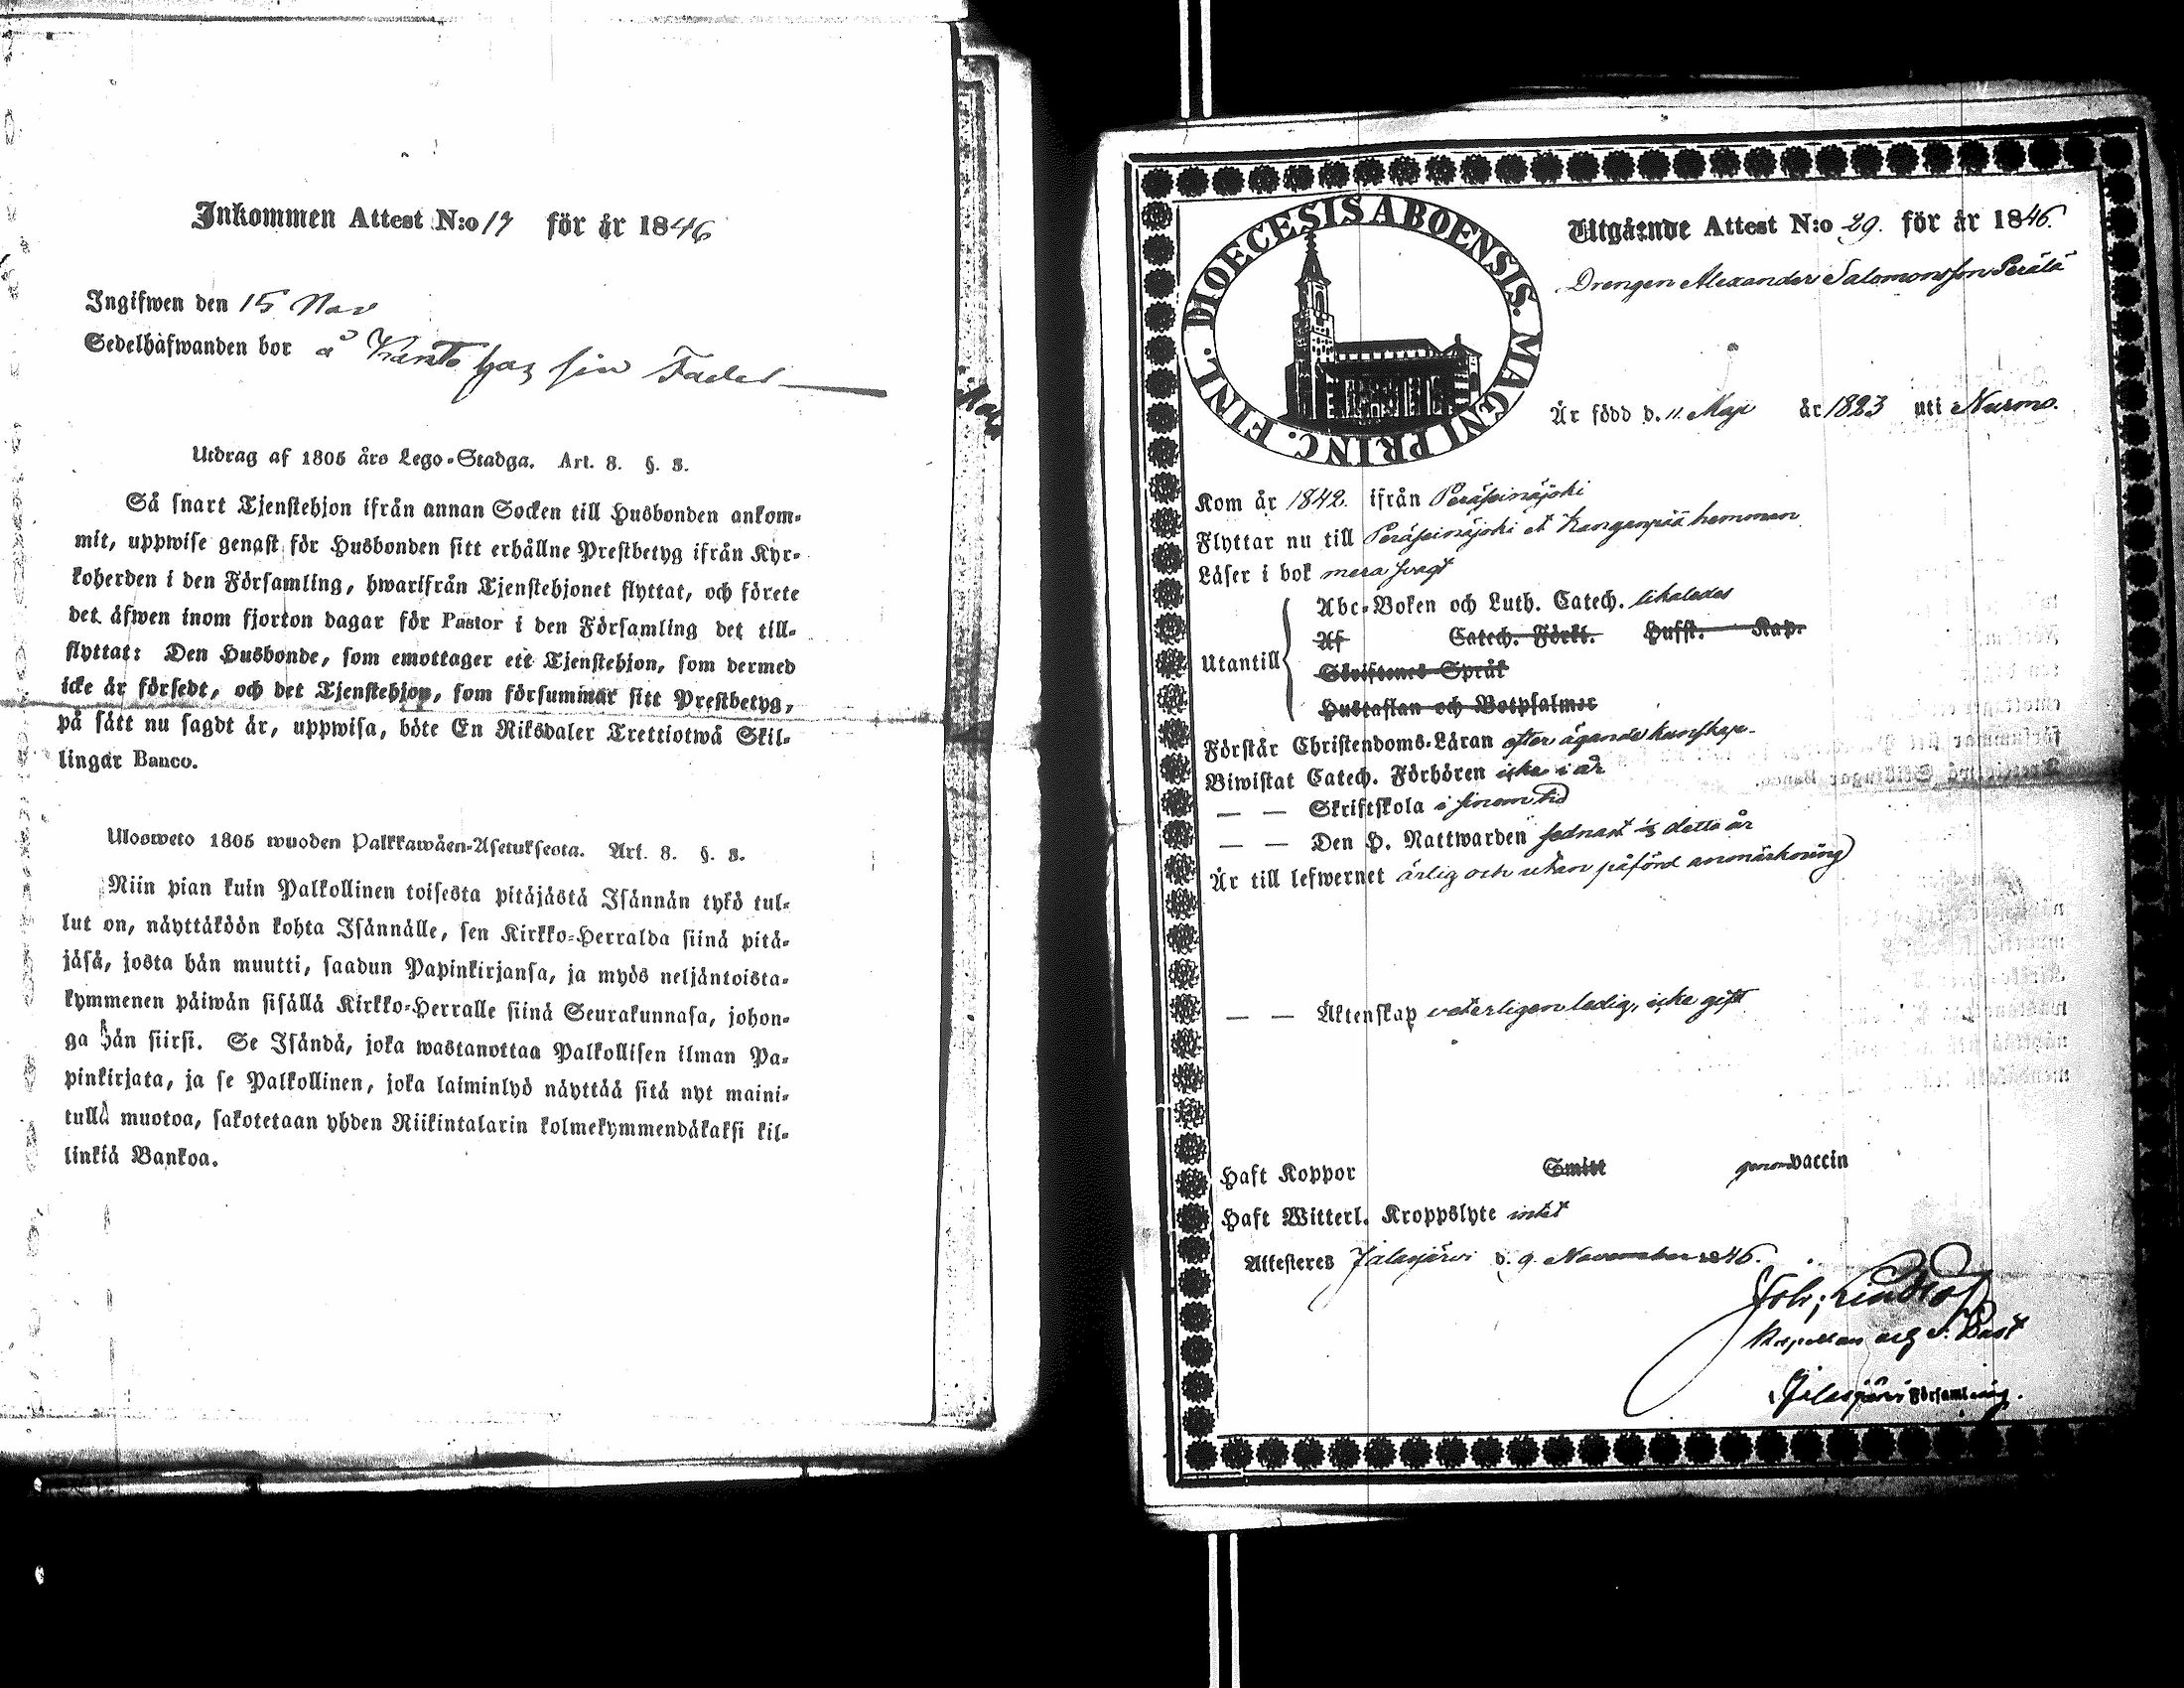 Inkommen Attest N:o 17 för år 1846
Ingifwen den 15 Nov
Sedelhafwanden bor å Kanto hos sin Fader
Utdrag af 1805 års Lego-Stadga. Art. 8. §. 3.
Så snart Tjenstehjon ifrån annan Socken till Husbonden ankom-
mit, uppwise genast för Husbonden sitt erhållne Prestbetyg ifrån Kyr-
koherden i den Församling, hwarifrån Tjenstehjonet flyttat, och förete
det äfwen inom fjorton dagar för Pastor i den Församling det till-
flyttat: Den Husbonde, som emottager ett Tjenstehjon, som dermed
icke är försedt, och det Tjenstehjon, som försummar sitt Prestbetyg,
på sätt nu sagdt är, uppwisa, böte En Riksdaler Trettiotwå Skil-
lingar Banco.
Ulosweto 1805 wuoden Palkkawäen-Asetuksesta. Art. 8. §. 3.
Niin pian kuin Palkollinen toisesta pitäjästä Isännän tykö tul-
lut on, näyttäköön kohta Isännälle, sen Kirkko-Herralda siinä pitä-
jäsä, josta hän muutti, saadun Papinkirjansa, ja myös neljäntoista-
kymmenen päiwän sisällä Kirkko-Herralle siinä Seurakunnasa, johon-
ga hän siirsi. Se Isändä, joka wastanottaa Palkollisen ilman Pa-
pinkirjata, ja se Palkollinen, joka laiminlyö näyttää sitä nyt maini-
tulla muotoa, sakotetaan yhden Riikintalarin kolmekymmendäkaksi kil-
linkiä Bankoa.
DIOECESIS ABOENSIS. MAGNI PRINC. FINL.
Utgående Attest N:o 29. för år 1846.
Drengen Alexander Salomonsson Perälä
Är född d. 11 Maji år 1823 uti Nurmo.
Kom år 1842. ifrån Peräseinäjoki
Flyttar nu till Peräseinäjoki et Kanganpää hemman
Läser i bok mera svagt
Utantill
Abc-Boken och Luth. Catech. likaledes
Af Catech. Förkl. Hufst. Kap.
Skriftenes Språk
Hustaflan och Botpsalmer
Förstår Christendoms-Läran efter ägande kunskap.
Biwistat Catech. Förhören icke i år
— — Skriftskola i sinom tid
— — Den H. Nattwarden sednast detta år
Är till lefwernet ärlig och utan påförd anmärkning
— — Äktenskap veterligen ledig, icke gift
Haft Koppor Smitt genom vaccin
Haft Witterl. Kroppslyte intet
Attesteres Jalasjärvi d. 9. November 1846.
Joh:
Kapellan
Jalasjärvi Församling.